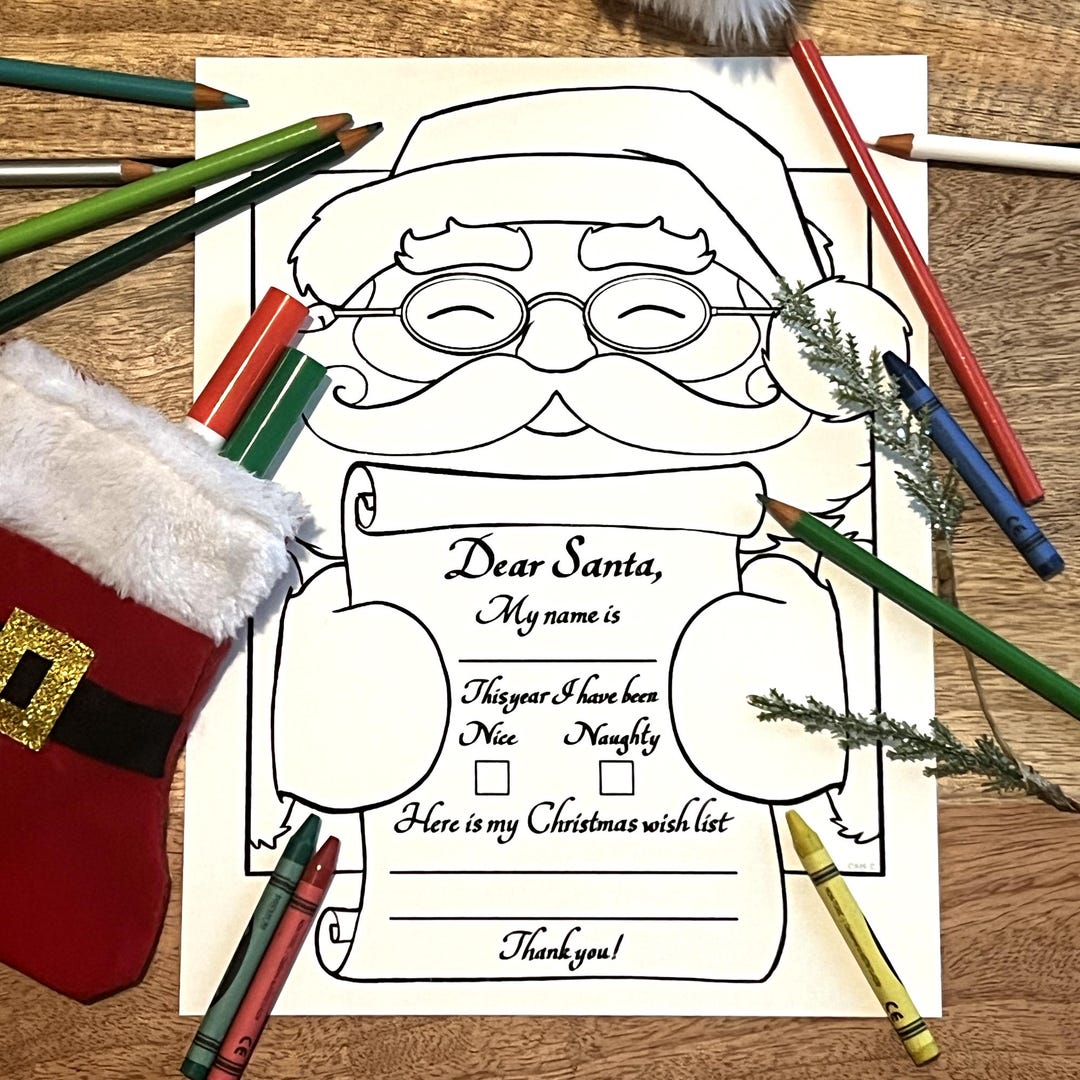 Dear Santa,
My name is
This year I have been
Nice Naughty
Here is my Christmas wish list
Thank you!
CE
CE
CE